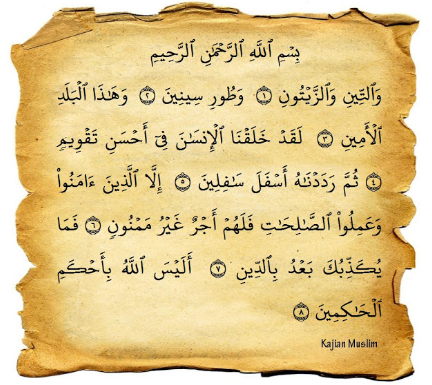 بِسْمِ اللَّهِ الرَّحْمَٰنِ الرَّحِيمِ
وَالتِّينِ وَالزَّيْتُونِ ١ وَطُورِ سِينِينَ ٢ وَهَٰذَا الْبَلَدِ
الْأَمِينِ ٣ لَقَدْ خَلَقْنَا الْإِنسَٰنَ فِىٓ أَحْسَنِ تَقْوِيمٍ
٤ ثُمَّ رَدَدْنَٰهُ أَسْفَلَ سَٰفِلِينَ ٥ إِلَّا الَّذِينَ ءَامَنُوا۟
وَعَمِلُوا۟ الصَّٰلِحَٰتِ فَلَهُمْ أَجْرٌ غَيْرُ مَمْنُونٍ ٦ فَمَا
يُكَذِّبُكَ بَعْدُ بِالدِّينِ ٧ أَلَيْسَ اللَّهُ بِأَحْكَمِ
الْحَٰكِمِينَ ٨
Kajian Muslim